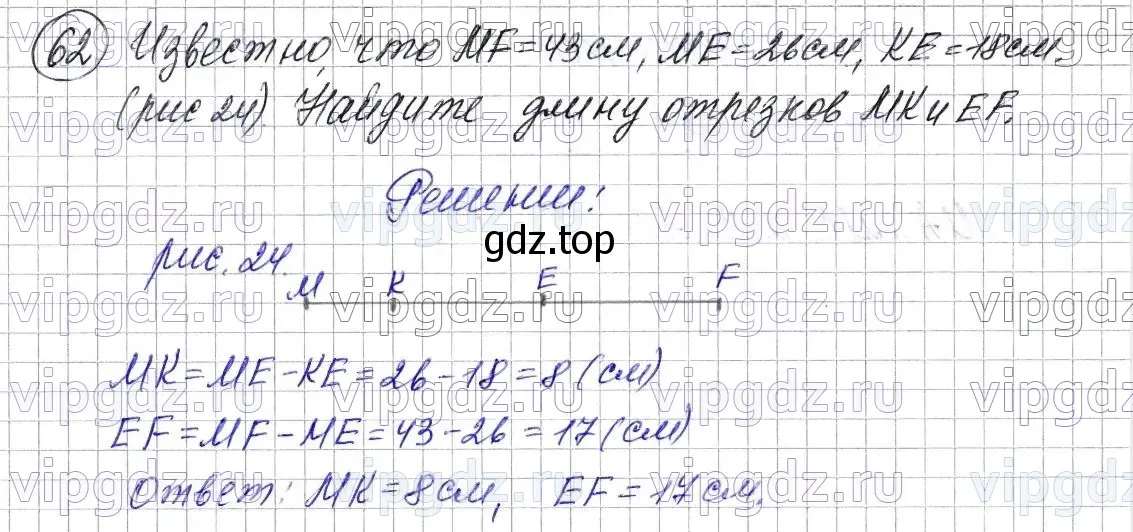 62 Известно, что MF=43см, ME=26см, KE=18см.
(рис 24) Найдите длину отрезков MK и EF.
Решении:
gdz.top
рис. 24.
M K E F
MK=ME-KE=26-18=8 (см)
EF=MF-ME=43-26=17 (см)
Ответ: MK=8см, EF=17см.
vipgdz.ru